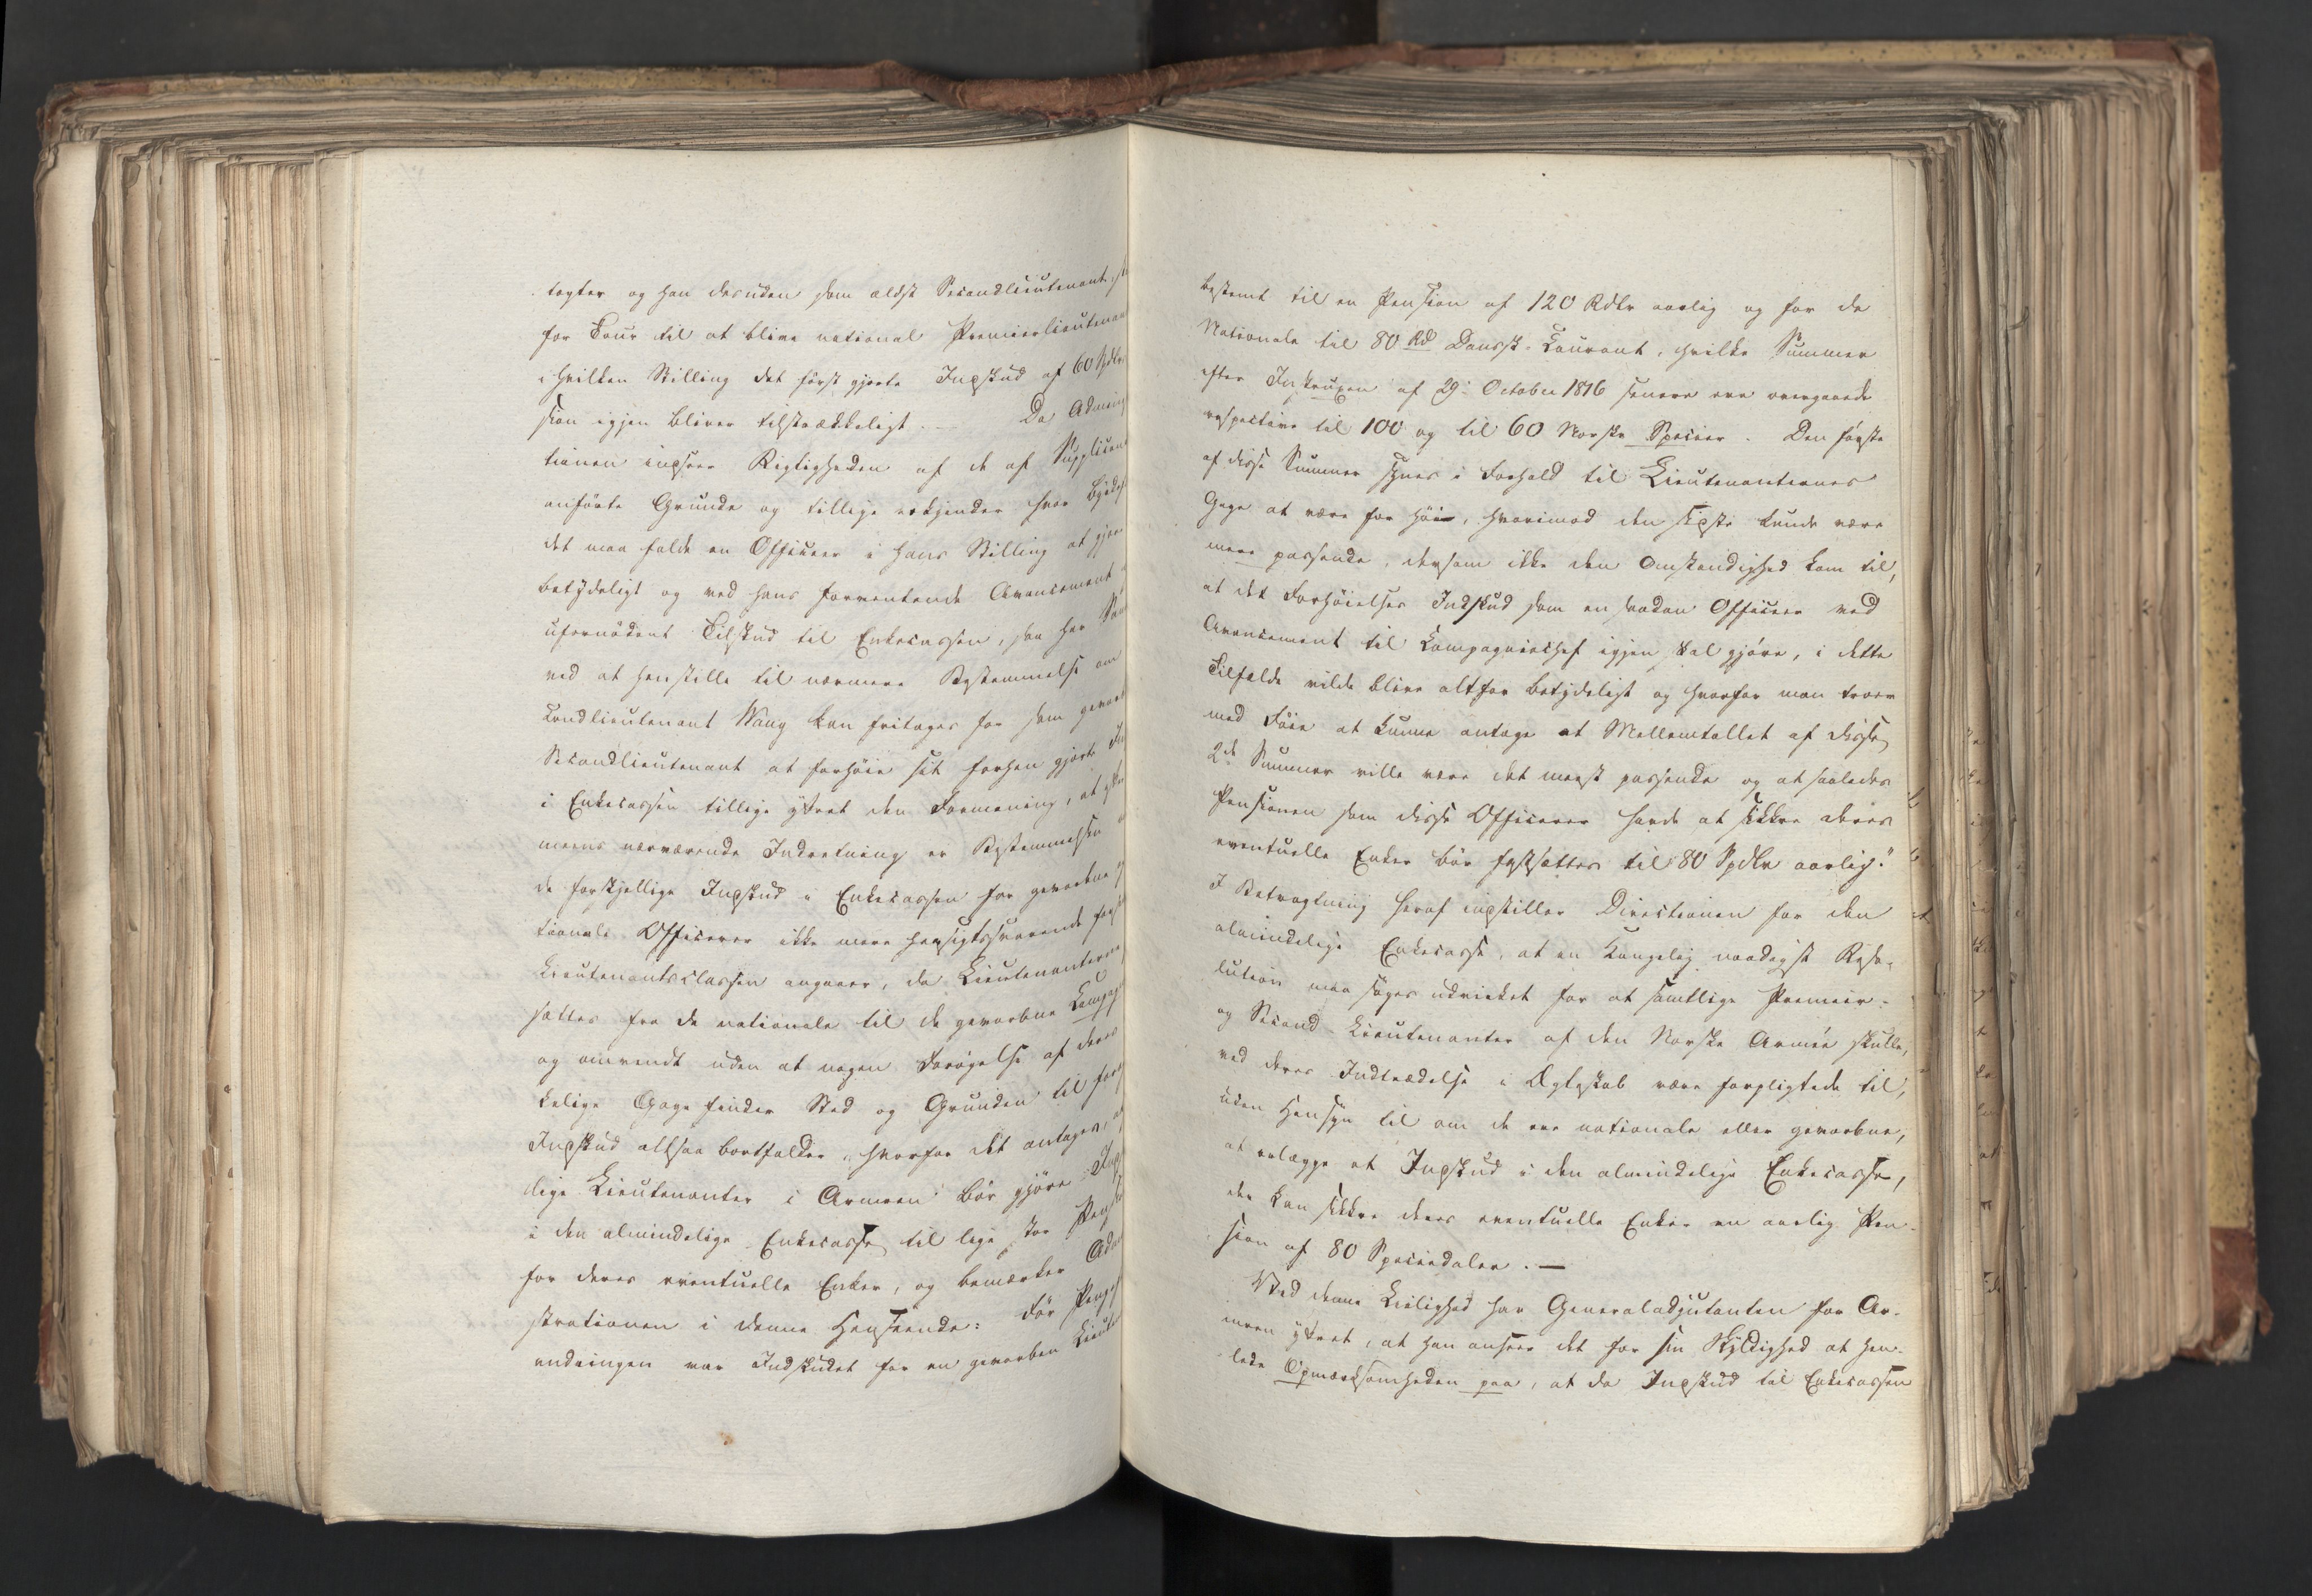 tagter og han desuden som ældst Secondlieutenant,
for Tour til at blive national Premierlieutenan
i hvilken Stilling det først gjorte Indskud af 60 Spdlr
sion igjen bliver tilstrækkeligt. — Da Admini
tionen indseer Rigtigheden af de af Supplican
anførte Grunde og tillige erkjender hvor byrdef
det maa falde en Officeer i hans Stilling at gjøre
betydeligt og ved hans forventende Avancement
ufornødent Tilskud til Enkecassen, saa har
ved at henstille til nærmere Bestemmelse om
condlieutenant Wang kan fritages for som gevorb
Secondlieutenant at forhøie sit forhen gjorte In
i Enkecassen tillige yttret den Formening, at efter
meens nærværende Indretning er Bestemmelsen
de forskjellige Indskud i Enkecassen for gevorbne og
tionale Officerer ikke mere hensigtssvarende for
Lieutenantsclassen angaaer, da Lieutenanterne
sættes fra de nationale til de gevorbne Compag
og omvendt uden at nogen Forøgelse af deres
kelige Gage finder Sted og Grunden til for
Indskud altsaa bortfalder, hvorfor det antages, at
dige Lieutenanter i Armeen bør gjøre Ind
i den almindelige Enkecasse til lige stor Pensi
for deres eventuelle Enker, og bemærker Admi
strationen i denne Henseende: Før Penge
andringen var Indskudet for en gevorben Lieute
bestemt til en Pension af 120 Rdlr aarlig og for de
Nationale til 80 Rd Dansk Courant, hvilke Summer
efter Instruxen af 29de October 1816 senere ere overgaaede
respective til 100 og til 60 Norske Species. Den første
af disse Summer synes i Forhold til Lieutenanternes
Gage at være for høi, hvorimod den sidste kunde være
mere passende, dersom ikke den Omstændighed kom til,
at det Forhøielses Indskud som en saadan Officeer ved
Avancement til Compagniechef igjen skal gjøre, i dette
Tilfælde vilde blive altfor betydeligt og hvorfor man troer
med Føie at kunne antage at Mellemtallet af disse
2de Summer ville være det meest passende og at saaledes
Pensionen som disse Officerer havde at sikkre deres
eventuelle Enker bør fastsættes til 80 Spdlr aarlig."
I Betragtning heraf indstiller Directionen for den
almindelige Enkecasse, at en Kongelig naadigst Reso-
lution maa søges udvirket for at samtlige Premier-
og Second-Lieutenanter af den Norske Armée skulle,
ved deres Indtrædelse i Ægteskab være forpligtede til,
uden Hensyn til om de ere nationale eller gevorbne,
at erlægge et Indskud i den almindelige Enkecasse,
der kan sikkre deres eventuelle Enker en aarlig Pen-
sion af 80 Speciesdaler. —
Ved denne Leilighed har Generaladjutanten for Ar-
meen yttret, at han anseer det for sin Skyldighed at hen-
lede Opmærksomheden paa, at da Indskud til Enkecassen